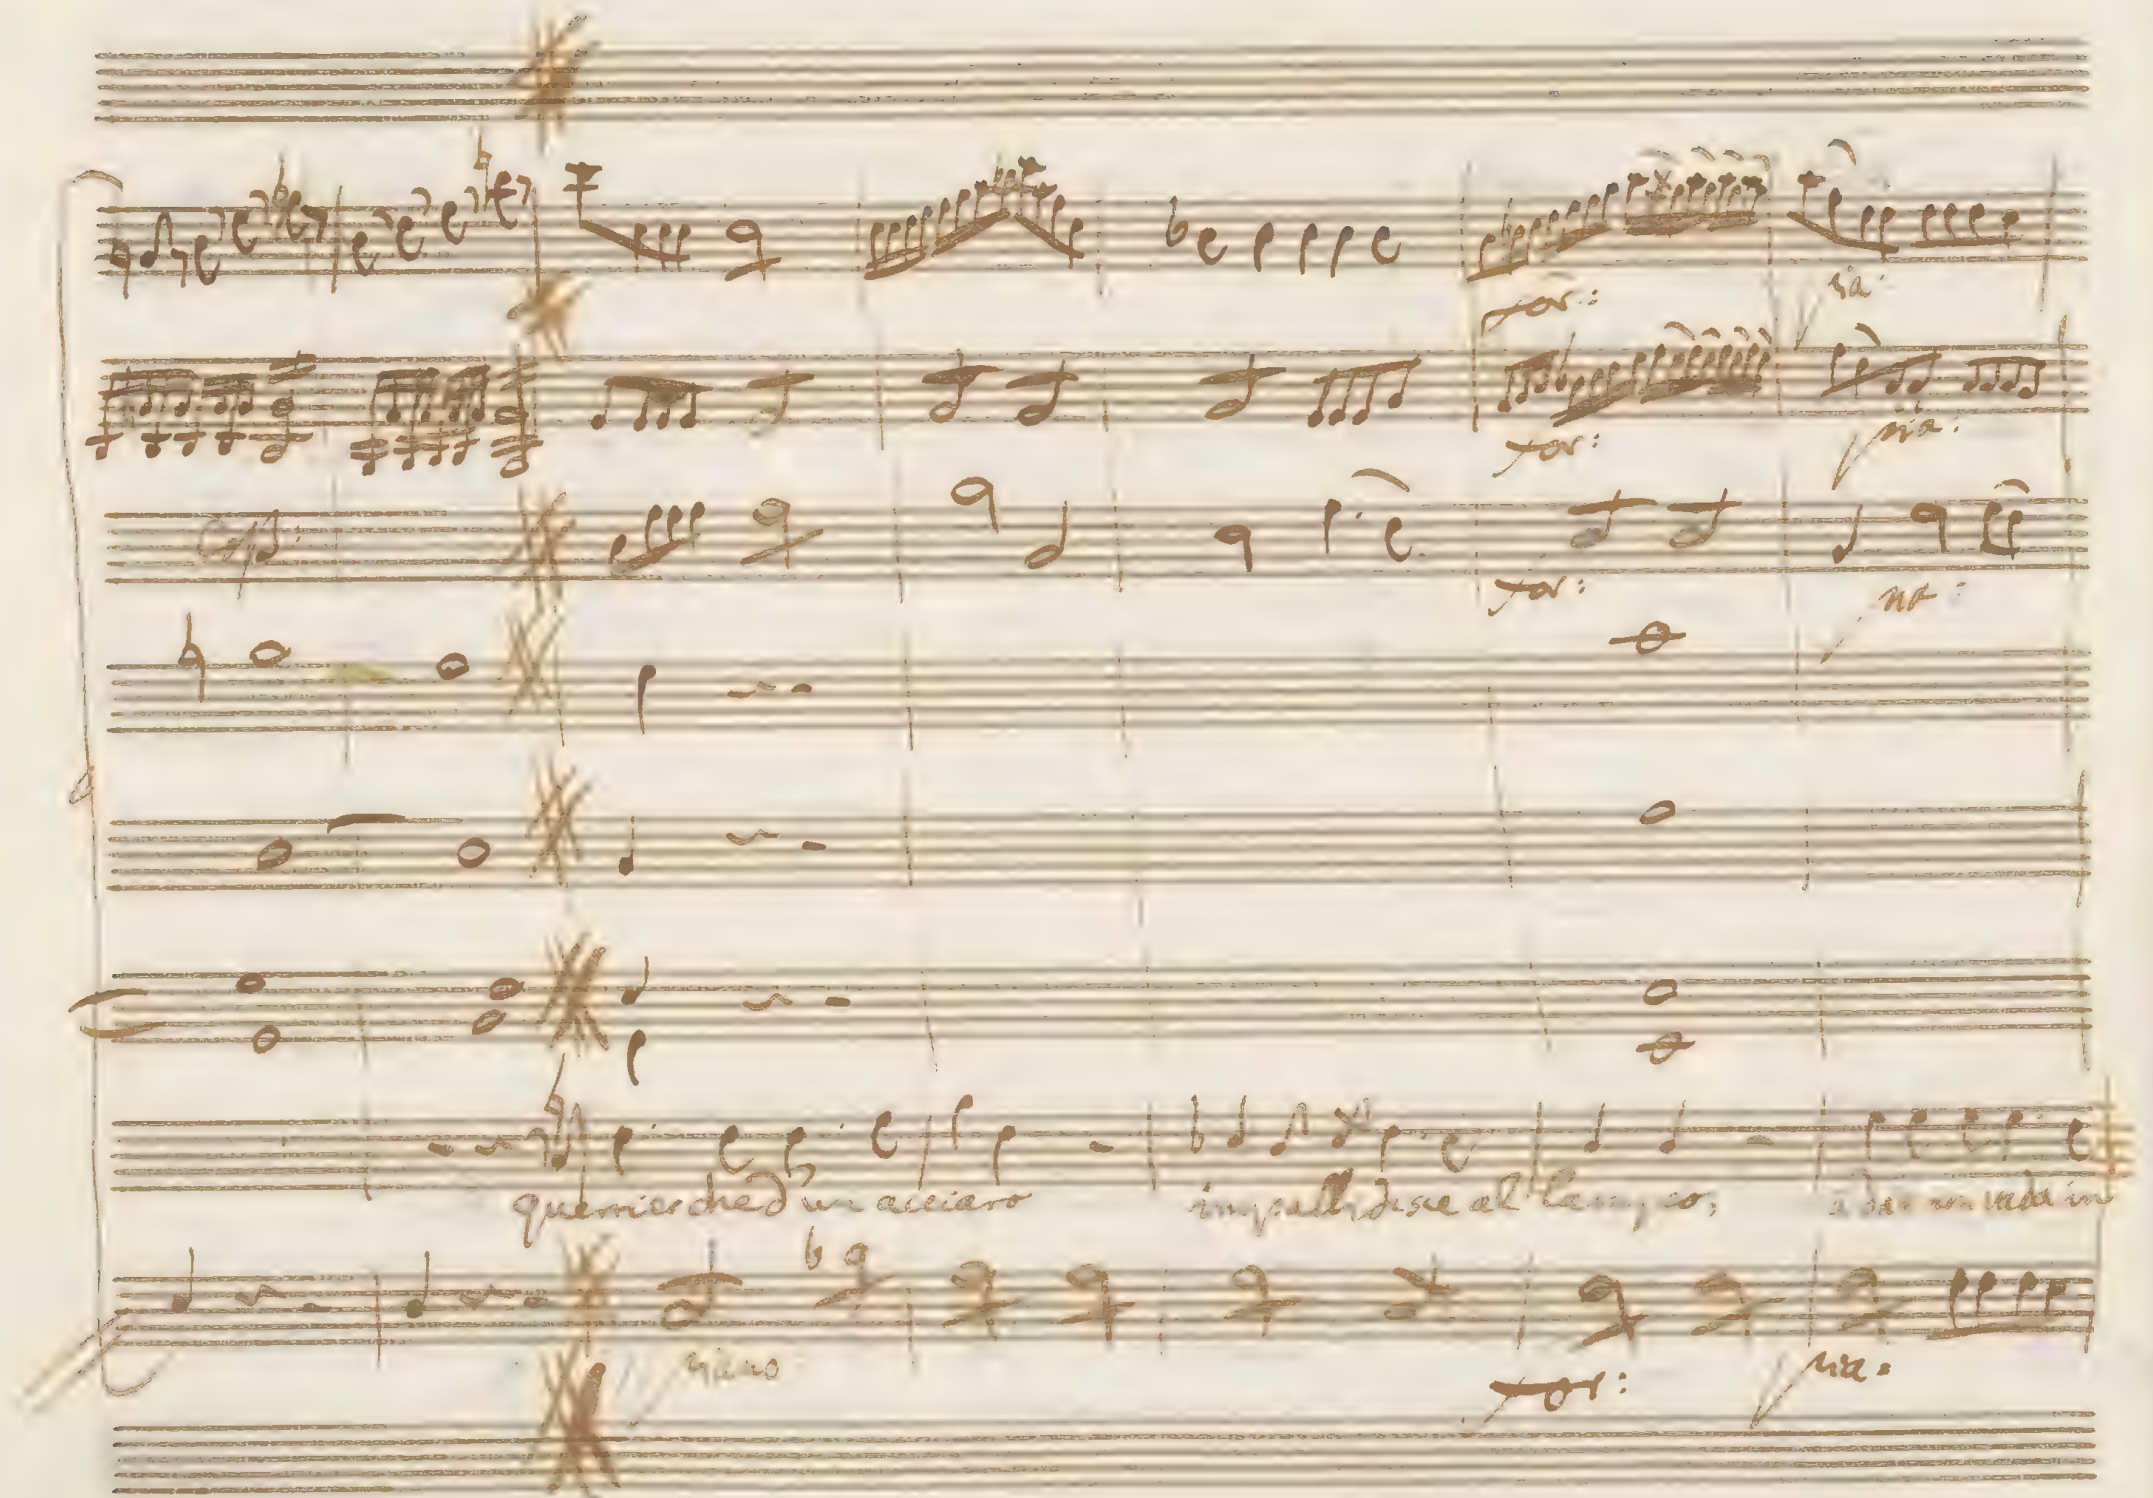 for: pia:
for: pia:
Colb:
for: pia:
guerrier che d'un acciaro impallidisce al lampo, a dar non vada in
piano for: pia: